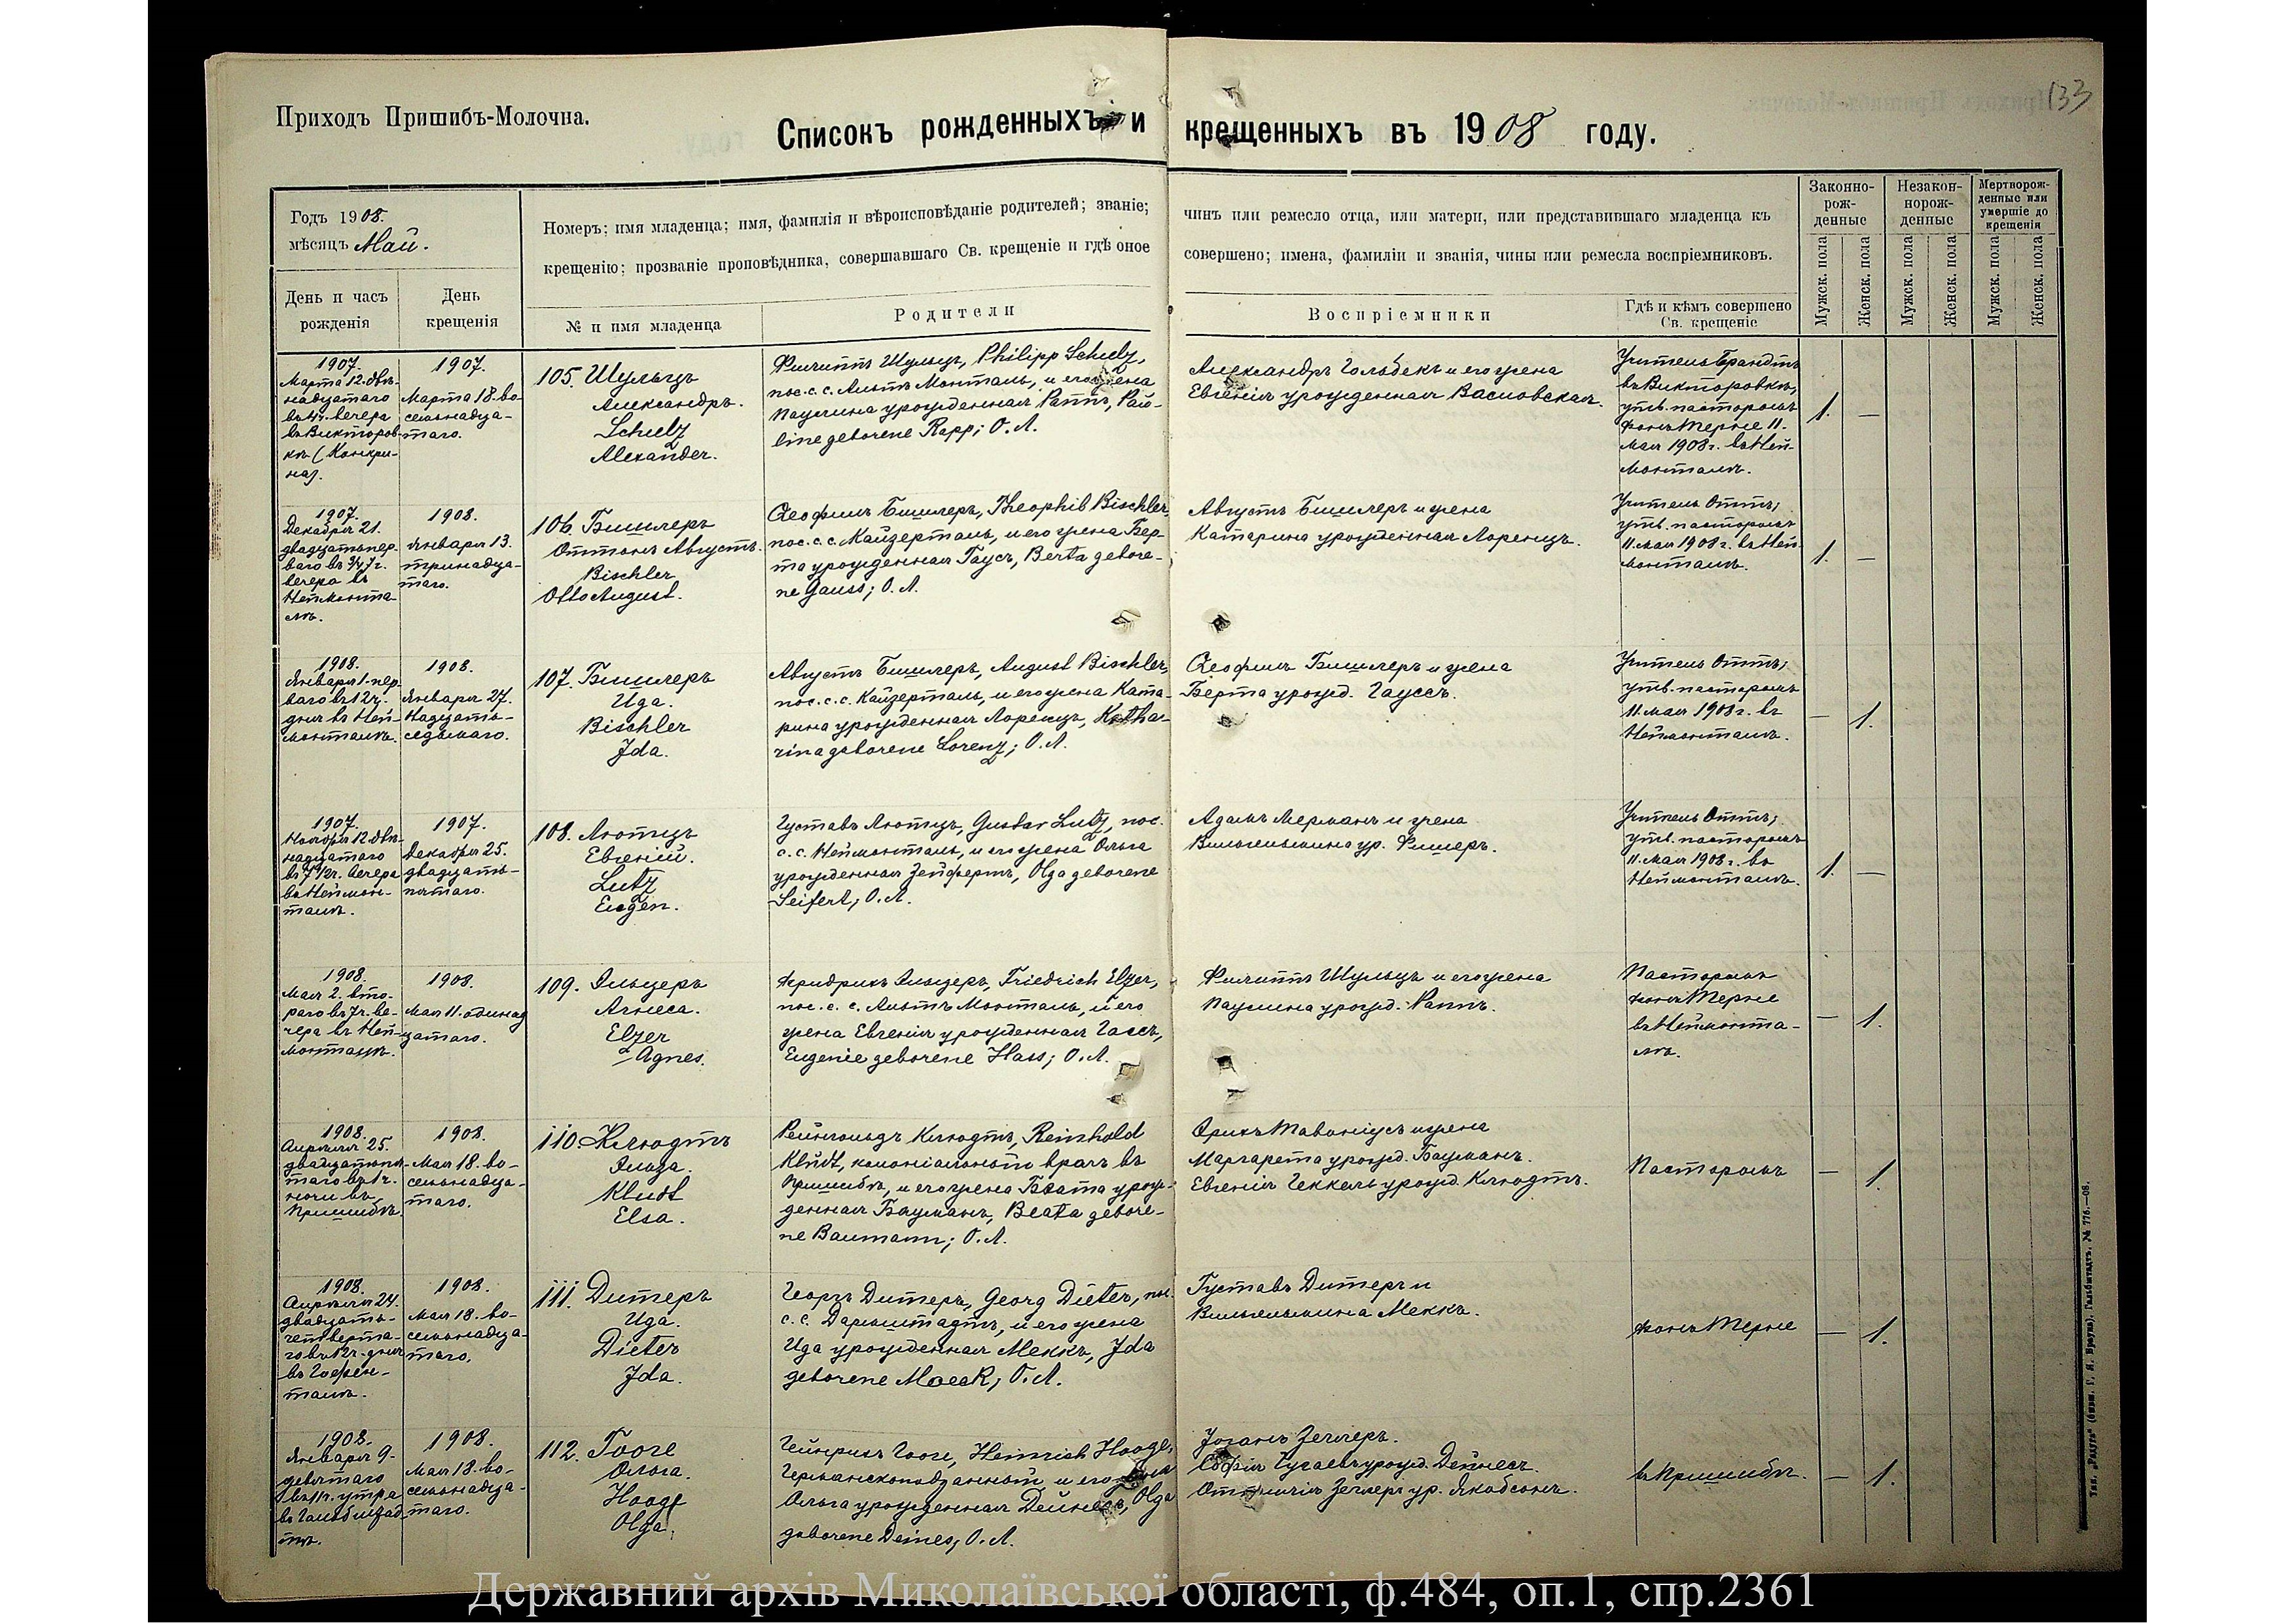 133
Приходъ Пришибъ-Молочна.
Списокъ рожденныхъ и крещенныхъ въ 1908 году.
Годъ 1908.
мѣсяцъ Май.
День и часъ рожденія
День крещенія
Номеръ; имя младенца; имя, фамилія и вѣроисповѣданіе родителей; званіе; чинъ или ремесло отца, или матери, или представившаго младенца къ
крещенію; прозваніе проповѣдника, совершавшаго Св. крещеніе и гдѣ оное совершено; имена, фамиліи и званія, чины или ремесла воспріемниковъ.
№ и имя младенца
Родители
Воспріемники
Гдѣ и кѣмъ совершено
Св. крещеніе
Законно-
рож-
денные
Незакон-
норож-
денные
Мертворож-
денные или
умершіе до
крещенія
Мужск. пола
Женск. пола
Мужск. пола
Женск. пола
Мужск. пола
Женск. пола
1907.
Марта 12. двѣ-
надцатаго
въ 4ч. вечера
въ Викторов-
кѣ (Конкри-
ная).
1907.
Марта 18. во-
семьнадца-
таго.
105. Шульцъ
Александръ.
Schulz
Alexander.
Филиппъ Шульцъ, Philipp Schulz,
пос. с. с. Альтъ Монталь, и его жена
Паулина урожденная Раппъ, Pau-
line geborene Rapp; О. Л.
Александръ Гольбекъ и его жена
Евгенія урожденная Васиовская.
Учитель Брандтъ
въ Викторовкѣ,
утв. пасторомъ
фонъ Терне 11.
Мая 1908г. въ Ней-
монталѣ.
1. —
1907.
Декабря 21.
двадцатьпер-
ваго въ 3/4 7 г.
вечера въ
Неймонта-
лѣ.
1908.
Января 13.
тринадца-
таго.
106. Бишлеръ
Оттонъ Августъ.
Bischler
Otto August.
Теофилъ Бишлеръ, Theophil Bischler,
пос. с. с. Кайзерталь, и его жена Бер-
та урожденная Гаусъ, Berta gebore-
ne Gauss; О. Л.
Августъ Бишлеръ и жена
Катарина урожденная Лоренцъ.
Учитель Оттъ;
утв. пасторомъ
11. мая 1908г. въ Ней-
монталѣ.
1. —
1908.
Января 1. пер-
ваго въ 12ч.
дня въ Ней-
монталѣ.
1908.
Января 27.
Надцать-
седьмаго.
107. Бишлеръ
Ида.
Bischler
Jda.
Августъ Бишлеръ, August Bischler,
пос. с. с. Кайзерталь, и его жена Ката-
рина урожденная Лоренцъ, Katha-
rina geborene Lorenz; О. Л.
Теофилъ Бишлеръ и жена
Берта урожд. Гауссъ.
Учитель Оттъ;
утв. пасторомъ
11. мая 1908г. въ
Неймонталѣ.
— 1.
1907.
Ноября 12. двѣ-
надцатаго
въ 7 1/2г. вечера
въ Неймон-
талѣ.
1907.
Декабря 25.
двадцать-
пятаго.
108. Лютцъ
Евгеній.
Lutz
Eugen.
Густавъ Лютцъ, Gustav Lutz, пос.
с. с. Неймонталь, и его жена Ольга
урожденная Зейфертъ, Olga geborene
Seifert; О. Л.
Адамъ Мерманъ и жена
Вильгельмина ур. Фишеръ.
Учитель Оттъ;
утв. пасторомъ
11. мая 1908г. въ
Неймонталѣ.
1. —
1908.
Мая 2. вто-
раго въ 7ч. ве-
чера въ Ней-
монталѣ.
1908.
Мая 11. одинад-
цатаго.
109. Эльцеръ
Агнеса.
Elzer
Agnes.
Фридрихъ Эльцеръ, Friedrich Elzer,
пос. с. с. Альтъ Монталь, и его
жена Евгенія урожденная Гассъ,
Eugenie geborene Hass; О. Л.
Филиппъ Шульцъ и его жена
Паулина урожд. Раппъ.
Пасторомъ
фонъ Терне
въ Неймонта-
лѣ.
— 1.
1908.
Апрѣля 25.
двадцатьпя-
таго въ 1ч.
ночи въ
Пришибѣ.
1908.
Мая 18. во-
семьнадца-
таго.
110. Клюдтъ
Эльза.
Kludt
Elsa.
Рейнгольдъ Клюдтъ, Reinhold
Kludt, колоніальный врачъ въ
Пришибѣ, и его жена Беата урож-
денная Бауманъ, Beata gebore-
ne Baumann; О. Л.
Эрикъ Тавоніусъ и жена
Маргарета урожд. Бауманъ.
Евгенія Геккель урожд. Клюдтъ.
Пасторомъ
— 1.
1908.
Апрѣля 24.
двадцать-
четверта-
го въ 12ч. дня
въ Гофен-
талѣ.
1908.
Мая 18. во-
семьнадца-
таго.
111. Дитеръ
Ида.
Dieter
Jda.
Георгъ Дитеръ, Georg Dieter, пос.
с. с. Дармштадтъ, и его жена
Ида урожденная Меккъ, Jda
geborene Moeck; О. Л.
Густавъ Дитеръ и
Вильгельмина Меккъ.
фонъ Терне
— 1.
1908.
Января 9.
девятаго
въ 11ч. утра
въ Гальбштад-
тѣ.
1908.
Мая 18. во-
семьнадца-
таго.
112. Гооге
Ольга.
Hooge
Olga.
Гейнрихъ Гооге, Heinrich Hooge,
Германскоподданный и его жена
Ольга урожденная Дейнесъ, Olga
geborene Deines; О. Л.
Јоганъ Зеглеръ.
Софія Гугаевъ урожд. Дейнесъ.
Оттилія Зеглеръ ур. Якобсонъ.
въ Пришибѣ.
— 1.
Тип. „Радуга" (бывш. Г. Я. Брауна), Гальбштадтъ. № 776.—08.
Державний архів Миколаївської області, ф.484, оп.1, спр.2361